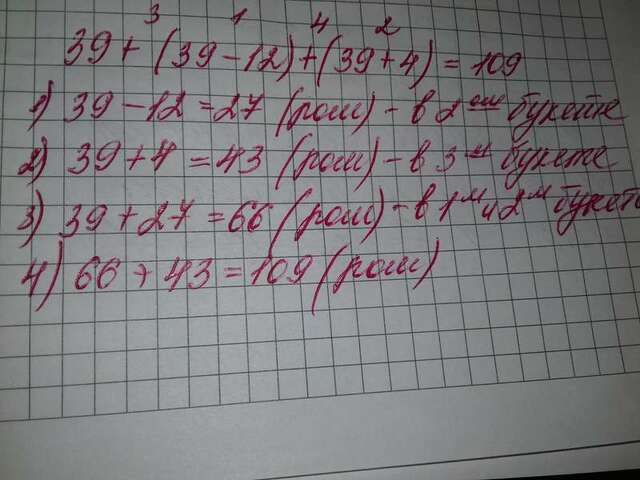 3 1 4 2
39 + (39 - 12) + (39 + 4) = 109
1) 39 - 12 = 27 (ром) - в 2 ом букете
2) 39 + 4 = 43 (ром) - в 3 м букете
3) 39 + 27 = 66 (ром) - в 1 м и 2 м букет
4) 66 + 43 = 109 (ром)